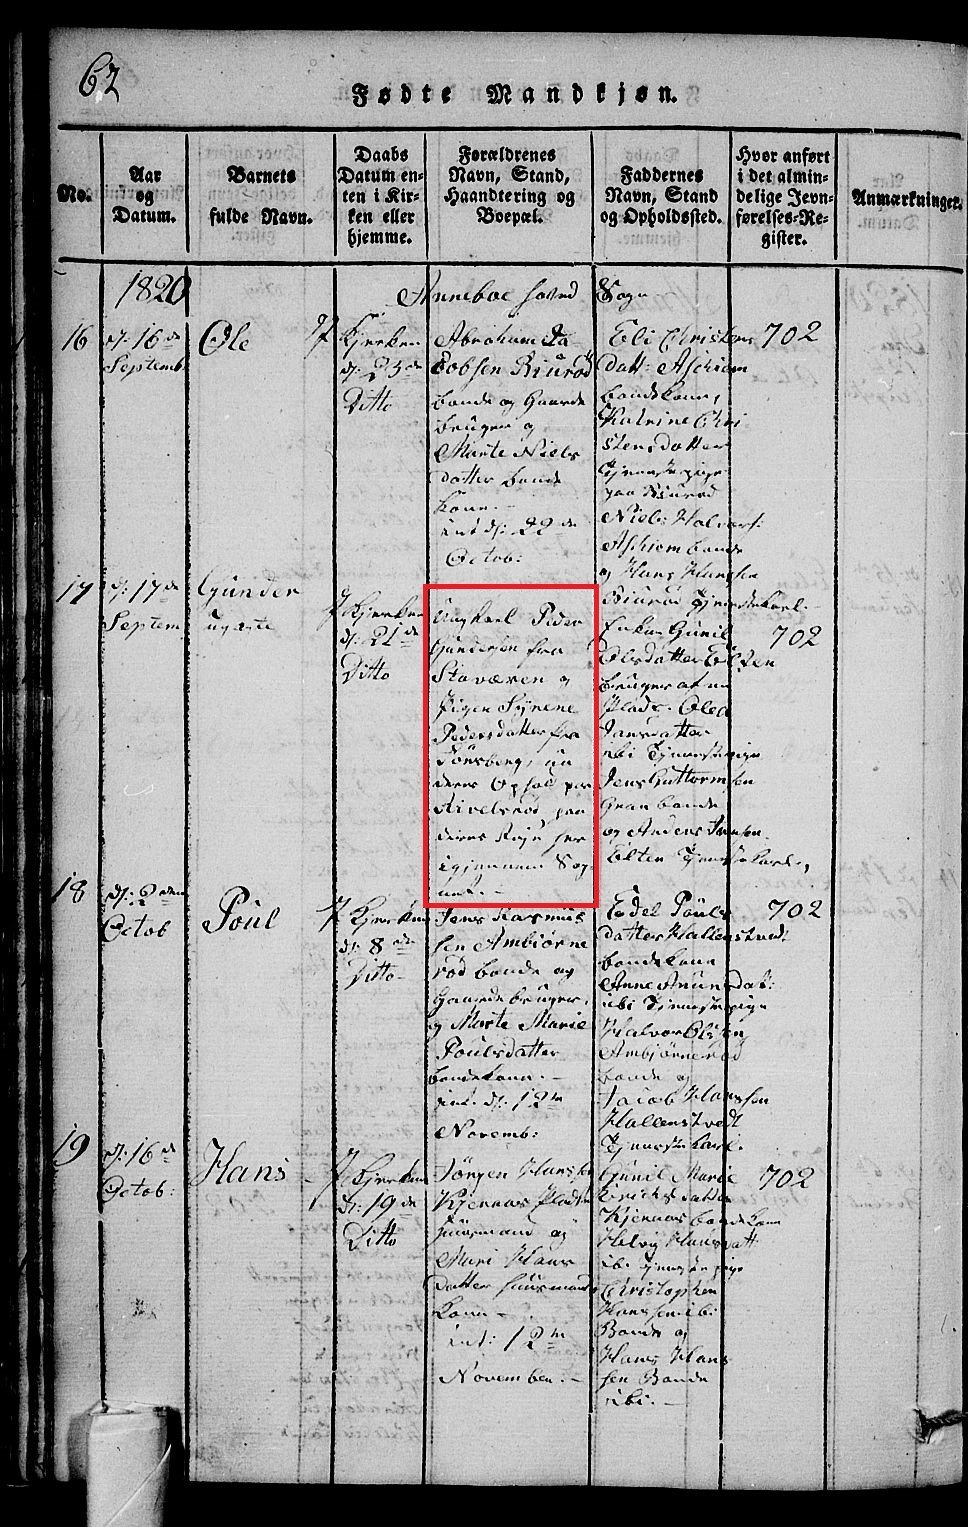 62
Fødte Mandkjøn.
No.
Aar
og
Datum.
Barnets
fulde Navn.
Daabs
Datum en-
ten i Kir-
ken eller
hjemme.
Forældrenes
Navn, Stand,
Haandtering og
Boepæl.
Faddernes
Navn, Stand
og Opholdssted.
Hvor anført
i det almin-
delige Jevn-
førelses-Re-
gister.
Anmærkninger.
1820
Anneboe hoved Sogn
16
d: 16de
Septemb
Ole
J Kjerken
d: 23de
Ditto
Abraham Ja
cobsen Biurød
bonde og Gaard
bruger og
Marte Niels
datter bonde
kone.-
int d: 22de
Octob:
Eli Christens
datt: Aschiem
bondekone,
Katrine Chri
stensdatter
Tjenestepige
paa Biurød
Niels Halvors:
Aschiem bonde
og Hans Hansen
Biurød Tjenestekarl.-
702
17
d: 17de
Septem
Gunder
uægte
J Kjerken
d: 21de
Ditto
Ungkarl Peder
Gundersen fra
Staværen og
Pigen Syrene
Pedersdatter fra
Tønsberg, un
deres Ophold paa
Kivelsrød, paa
deres Rejse her
igjennem Sog-
net.-
Enken Gunil
Olsdatter Elten
bruger af en
Plads. Olea
Jansdatter
ibi Tjenestepige
Jens Guttormsen
Gran bonde
og Anders Jansen
Elten Tjenestekarl,
702
18
d: 2den
Octob
Poul
J Kjerken
d: 8de
Ditto
Jens Rasmus
sen Ambiørns
rød bonde og
Gaardebruger,
og Marte Marie
Poulsdatter
bondekone.-
int. d: 12te
Novemb:
Edel Pouls
datter Hallenstvedt
bondekone
Anne Amundsdat:
ibi Tjenestepige
Halvor Olsen
Ambjørnsrød
bonde og
Jacob Hansen
Hallenstvedt
Tjenestekarl.
702
19
d: 16de
Octob:
Hans
J Kjerken
d: 19de
Ditto
Jørgen Hansen
Kjennaas Plads
huusmand og
Mari Hans
datter huusmands
kone -
int: 12te
November.-
Gunil Marie
Erichsdatter
Kjennaas bondekone
Helvig Hansdatt
ibi Tjenestepige
Christopher
Hansen ibi
Bonde og
Hans Han
sen Bonde
ibi.-
702